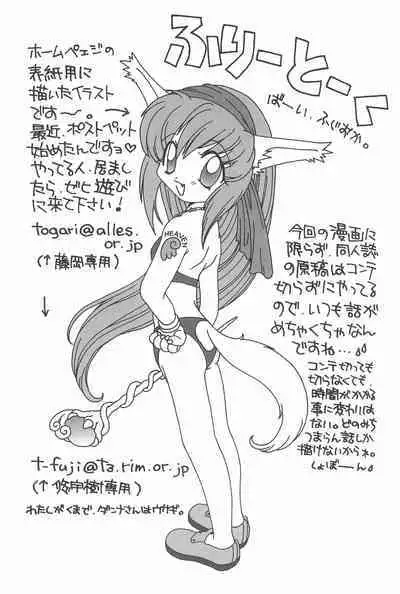 ふりーとーく
ばーい、ふじおか。
ホームペェジの
表紙用に
描いたイラスト
です〜。→
最近、ポストペット
始めたんですョ♡
やってる人、居まし
たら、ぜひ遊び
に来て下さい!
togari@alles.
or.jp
(↑藤岡専用)
↓
t-fuji@ta.rim.or.jp
(↑悠宇樹専用)
わたしがくまで、ダンナさんはウサギ。
HEAVEN
今回の漫画に
限らず、同人誌
の原稿はコンテ
切らずにやってる
ので、いつも話が
めちゃくちゃなん
ですね…
コンテ切っても
切らなくても、
時間がかかる
事に変わりは
ない。どのみち
つまらん話しか
描けないからね。
しょぼーん。